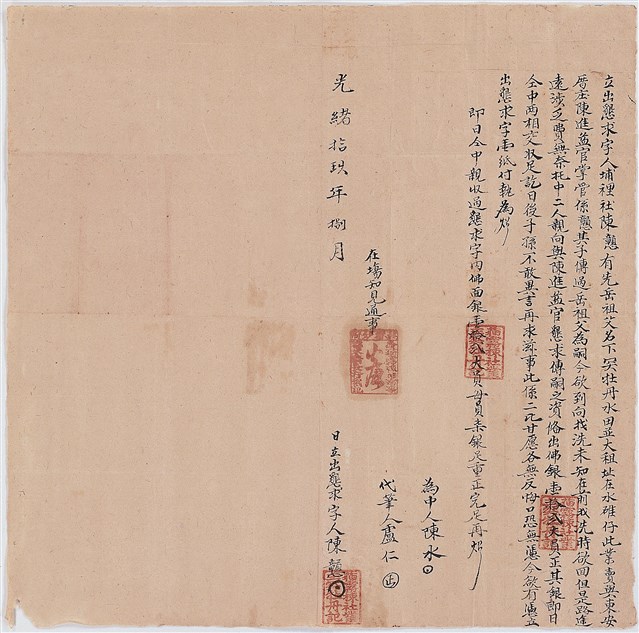 立出懇求字人埔裡社陳戇有先岳祖父名下冥牡丹水田並大租址在水碓仔此業賣與東安
厝庄陳進益官掌管係戇其子傳過岳祖父為嗣今欲到向找洗未知在前找洗時欲回但是路途
遠涉乏費無奈托中二人親向與陳進益官懇求傳嗣之資給出佛銀壹拾弍大員正其銀即日
仝中兩相交收足訖日後子孫不敢異言再求滋事此係二比甘愿各無反悔口恐無憑今欲有憑立
出懇求字壹紙付執為炤
即日仝中親收過懇求字內佛面銀壹拾弍大員每員柒銀足重正完足再炤
為中人陳水
代筆人盧仁
在場知見通事
光緒拾玖年捌月 日立出懇求字人陳戇